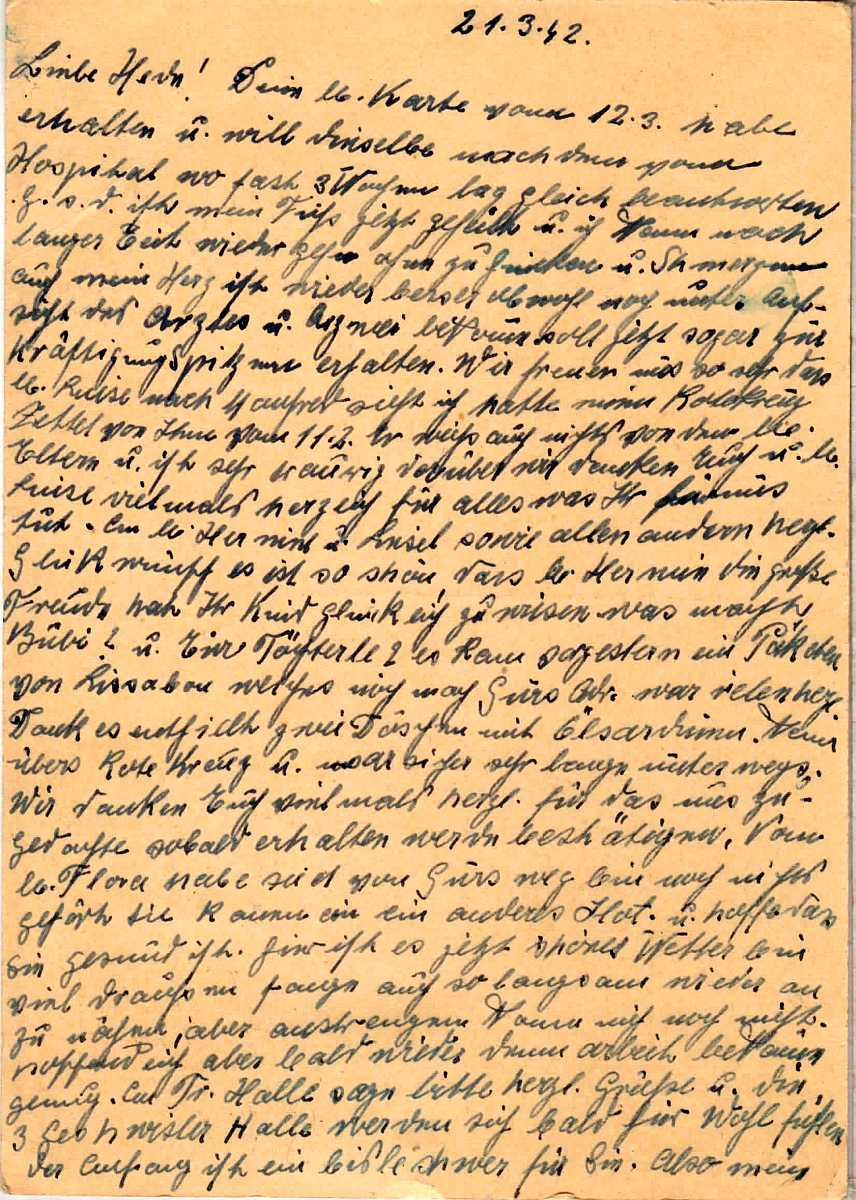 21.3.42.
Liebe Hedn! Dein lb. Karte vom 12.3. habe
erhalten u. will dieselbe nachdem vom
Hospital wo fast 3 Wochen lag gleich beantworten
G. s. d. ist mein Fuß jetzt geheilt u. ich kann nach
langer Zeit wieder gehn ohne zu hinken u. Shmerzen
auch mein Herz ist wieder besser obwohl noch unter Auf-
sicht des Arztes u. Arznei bekom soll jetzt sogar zur
Kräftigung Spitzen erhalten. Wir freuen uns so sehr das
lb. Luise nach sieht ich hatte mein Rotekreuz
Zettel von Ihm vom 11.2. Er weiß auch nichts von den lie.
Eltern u. ist sehr trauwrig darüber wir danken Euch u. lb.
Luise vielmals herzlich für alles was Ihr für uns
tut. An lb. Hermine u. Liesel sowie allen andern herzl.
Glükwunsch es ist so shön dass lb Hermin die große
Freude hat Ihr Kind glücklich zu wissen was macht
Bubi? u. Eure Töchterle? es kam vorgestern ein Päkchen
von Lissabon welches noch nach Gurs Adr. war vielen herzl
Dank es enthielt zwei Döschen mit Ölsardinen. kein
übers Rote Kreuz u. war sicher sehr lange unterwegs.
Wir danken Euch vielmals herzl. für das uns zu-
gedachte sobald erhalten werde beshätigen. Von
lb. Flora habe seid von Gurs weg bin noch nichts
gehört sie kamen in ein anderes Hot. u. hoffe das
sie gesund ist. hier ist es jetzt shönes Wetter bin
viel draußen fange auch so langsam wieder an
zu nähen, aber anstrengen kann mich noch nicht.
hoffendlich aber bald wieder denn arbeit bekäm
genug. An Fr. Halle sage bitte herzl. Grüße u. die
3 Geshwister Halle werden sich bald für Wohl fühlen
der Anfang ist ein bisle shwer für Sie. Also mein